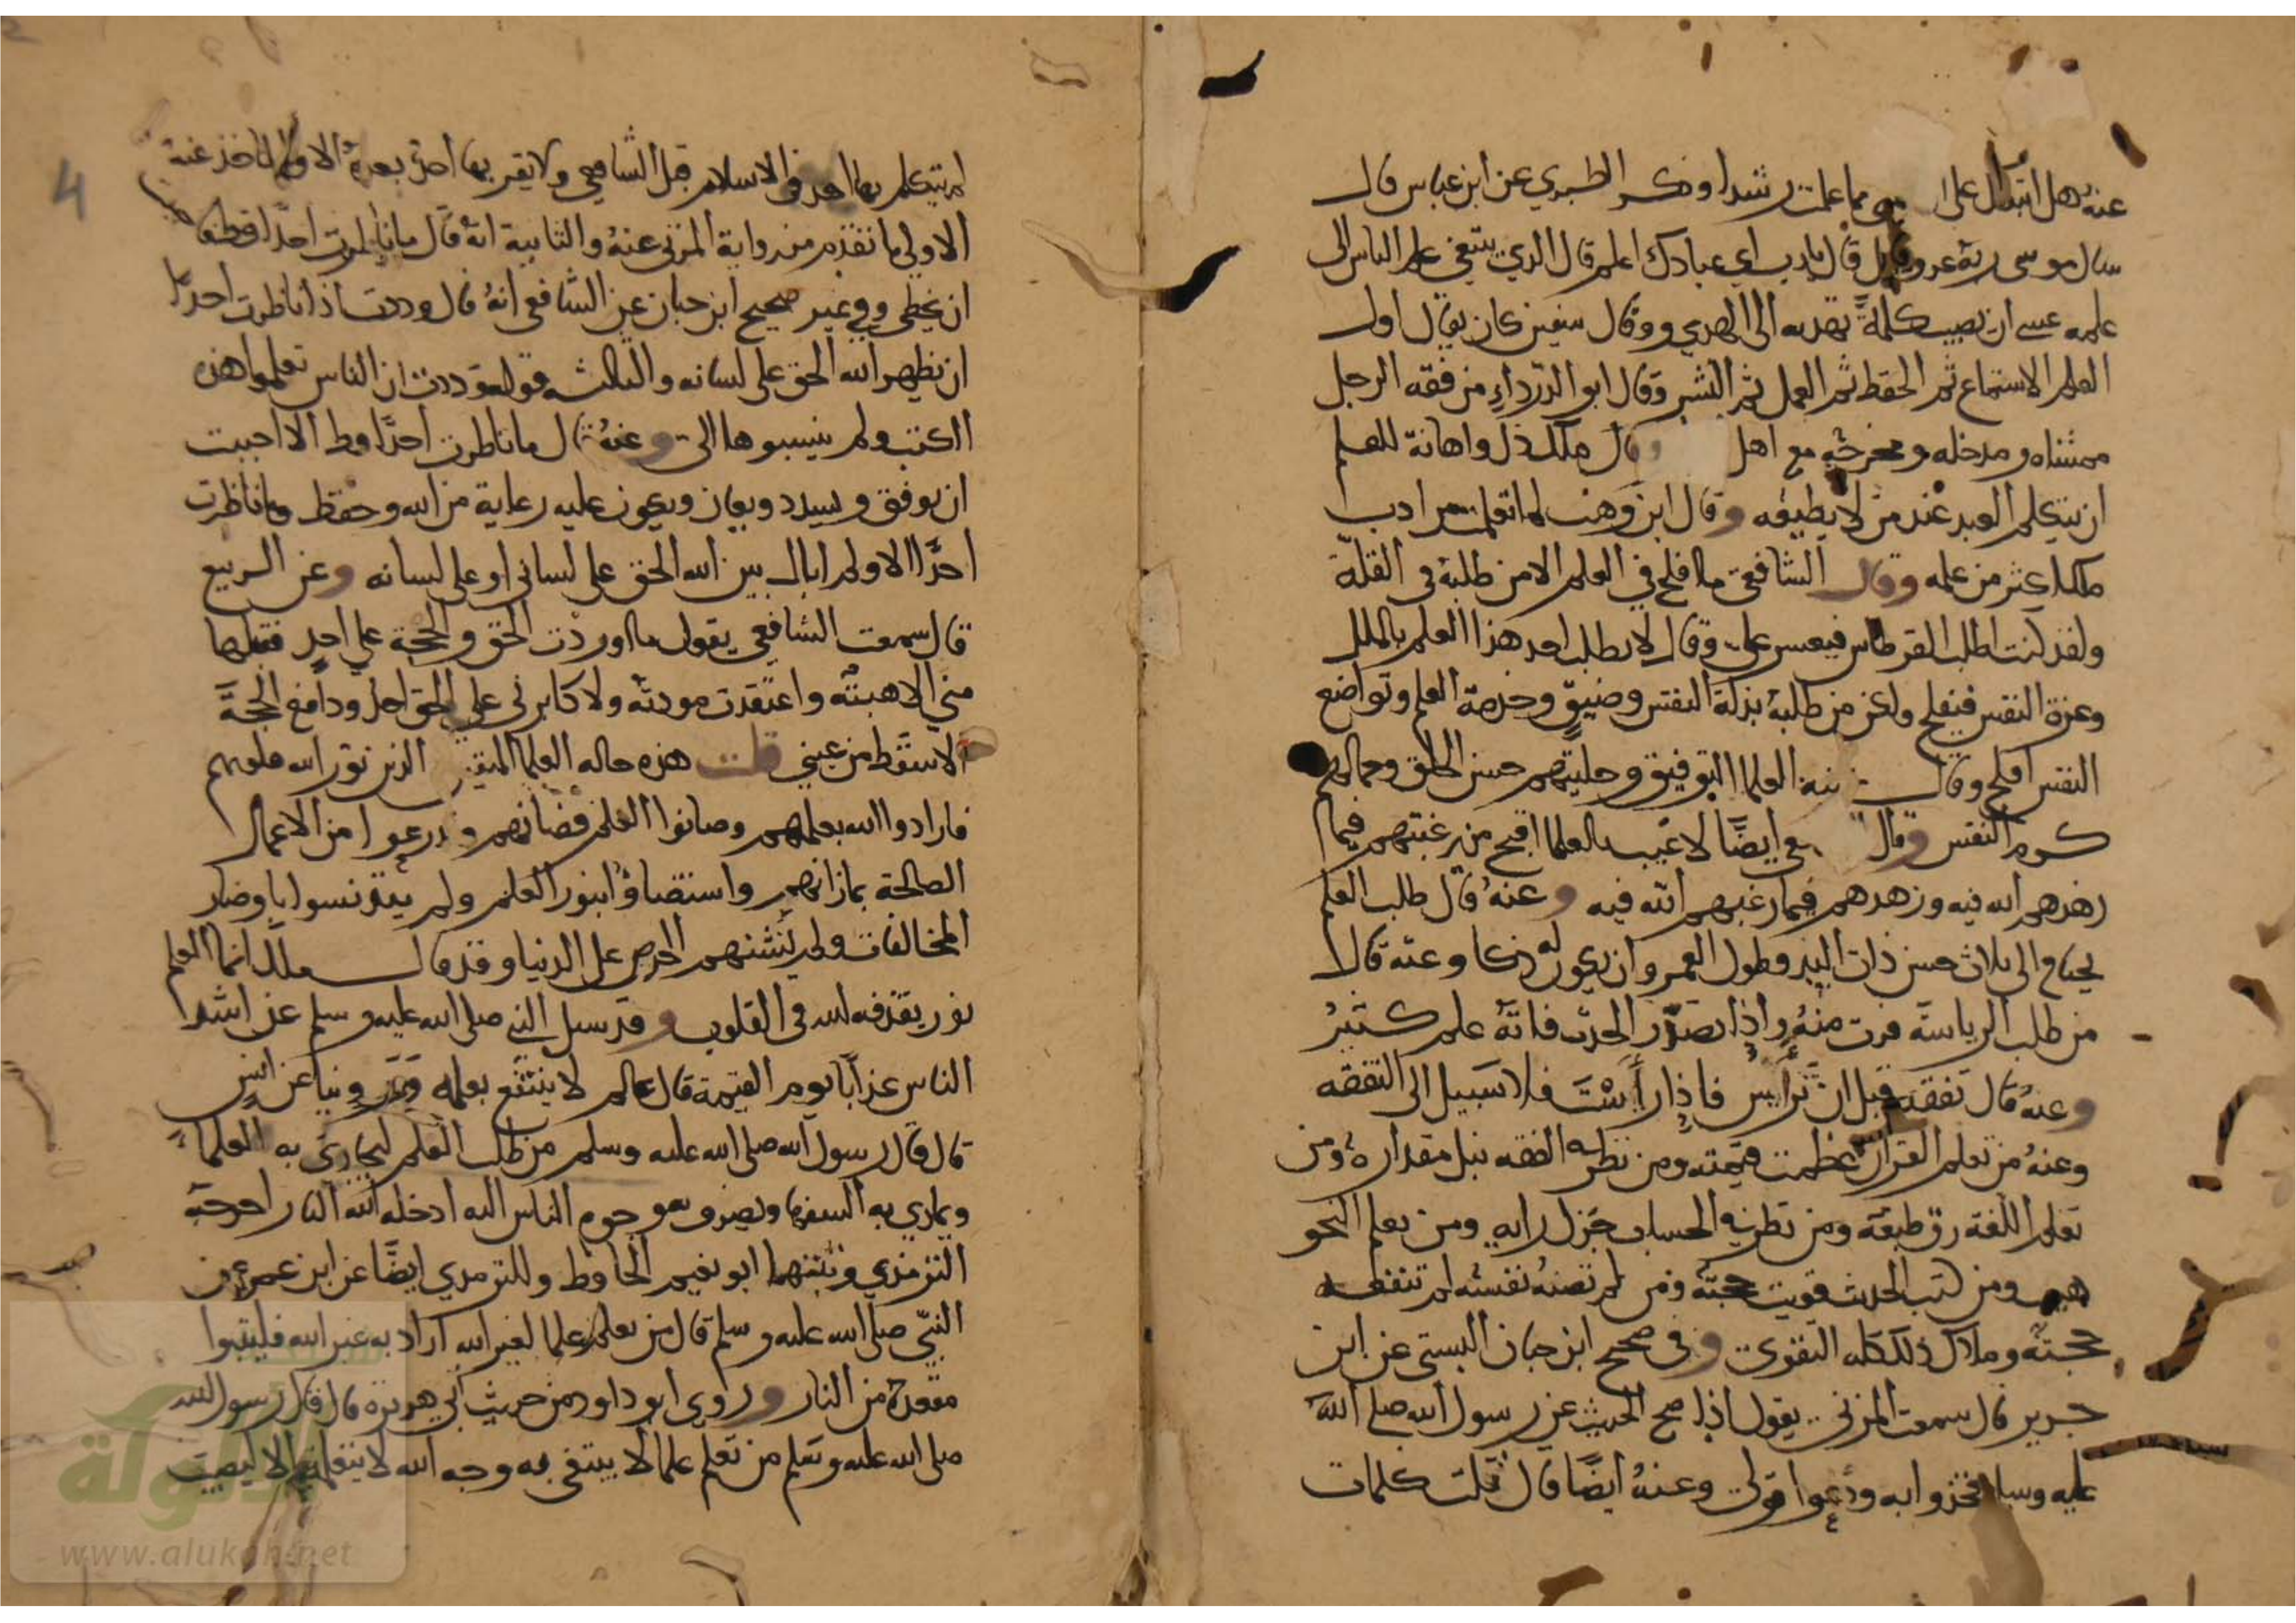 عنه هل اتبعك على ما علمت رشدا وذكر الطبري عن ابن عباس قال
سال موسى ربه عز وجل قال يارب اي عبادك اعلم قال الذي يبتغي علم الناس الى
علمه عسى ان يصيب كلمة تهديه الى الهدى وقال سفين كان يقال اول
العلم الاستماع ثم الحفظ ثم العمل ثم النشر وقال ابو الدرداء من فقه الرجل
ممشاه ومدخله ومخرجه مع اهل وقال ملك ذل واهانة للعلم
ان يتكلم العبد عند من لا يطيقه وقال ابن وهب لما تعلمت من ادب
ملك اكثر من علمه وقال الشافعي ما افلح في العلم الا من طلبه في القلة
ولقد كنت اطلب القرطاس فيعسر علي وقال لا يطلب احد هذا العلم بالملل
وعزة النفس فيفلح ولكن من طلبه بذلة النفس وضيق وخدمة العلم وتواضع
النفس افلح وقال زينة العلما التوفيق وحليتهم حسن الخلق وجمالهم
كرم النفس وقال ايضا لا عيب بالعلما اقبح من رغبتهم فيما
زهدهم الله فيه وزهدهم فيما رغبهم الله فيه وعنه قال طلب العلم
يحتاج الى ثلاث حسن ذات اليد وطول العمر وان يكون له ذكا وعنه قال لا
من طلب الرياسة فرت منه واذا تصدر الحدث فاته علم كثير
وعنه قال تفقه قبل ان ترأس فاذا رأست فلا سبيل الى التفقه
وعنه من تعلم القران عظمت قيمته ومن نظر في الفقه نبل مقداره ومن
تعلم اللغة رق طبعه ومن نظر في الحساب جزل رايه ومن تعلم النحو
هيب ومن كتب الحديث قويت حجته ومن لم تصنه نفسه لم تنفعه
حجته وملاك ذلك كله التقوى وفي صحيح ابن حبان البستي عن ابن
جرير قال سمعت المزني يقول اذا صح الحديث عن رسول الله صلى الله
عليه وسلم فخذوا به ودعوا قولي وعنه ايضا قال ثلث كلمات
لم يتكلم بها احد في الاسلام قبل الشافعي ولا يقر بها احد بعده الا والماخذ عنه
الاولى ما تقدم من رواية المزني عنه والثانية انه قال ما ناظرت احدا قط
ان يخطي وفي غير صحيح ابن حبان عن الشافعي انه قال وددت اذا ناظرت احدا
ان يظهر الله الحق على لسانه والثالثة قوله وددت ان الناس تعلموا هذه
الكتب ولم ينسبوها الي وعنه قال ما ناظرت احدا قط الا احببت
ان يوفق ويسدد ويعان ويكون عليه رعاية من الله وحفظ وما ناظرت
احدا الا ولم ابال بين الله الحق على لساني او على لسانه وعن الربيع
قال سمعت الشافعي يقول ما اوردت الحق والحجة على احد فقبلها
مني الا هبته واعتقدت مودته ولا كابرني على الحق احد ودافع الحجة
الا سقط من عيني قلت هذه حاله العلما المتقين الذين نور الله قلوبهم
فارادوا الله بعلمهم وصانوا العلم فصانهم و من الاعمال
الصالحة بما زانهم واستضاوا بنور العلم ولم يتدنسوا باوضار
المخالفات ولم الحرص على الدنيا وقد قال ملك انما العلم
نور يقذفه الله في القلوب وقد سيل النبي صلى الله عليه وسلم عن اشد
الناس عذابا يوم القيمة قال عالم لا ينتفع بعلمه وروينا عن انس
قال قال رسول الله صلى الله عليه وسلم من طلب العلم ليجاري به العلماء
ويماري به السفها ويصرف به وجوه الناس اليه ادخله الله النار اخرجه
الترمذي و ابو نعيم الحافظ وللترمذي ايضا عن ابن عمر عن
النبي صلى الله عليه وسلم قال من تعلم علما لغير الله اراد به غير الله فليتبوا
مقعده من النار وروى ابو داود من حديث ابي هريرة قال قال رسول الله
صلى الله عليه وسلم من تعلم علما لا يبتغي به وجه الله لا يتعلمه الا ليصيب